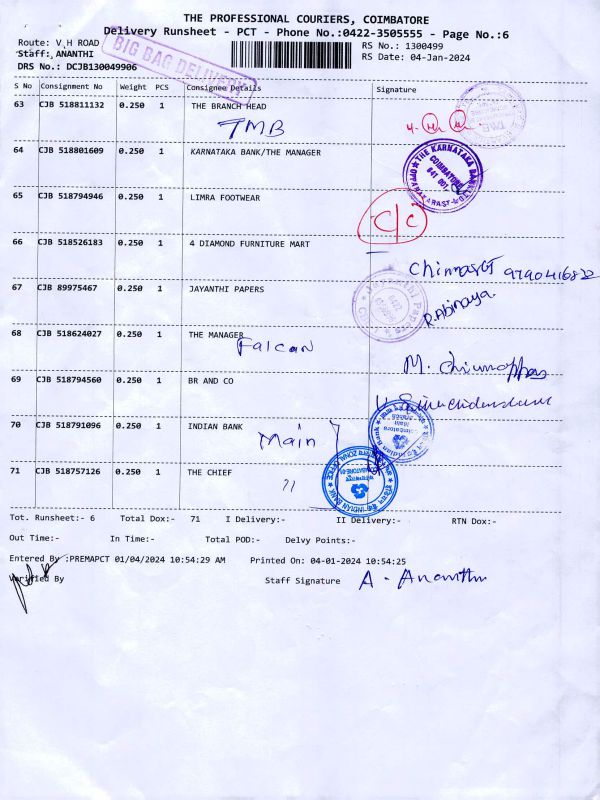 THE PROFESSIONAL COURIERS, COIMBATORE
Delivery Runsheet - PCT - Phone No.:0422-3505555 - Page No.:6
Route: V H ROAD
RS No.: 1300499
Staff: ANANTHI
RS Date: 04-Jan-2024
DRS No.: DCJB130049906
BIG BAG DELIVERY
S No Consignment No Weight PCS Consignee Details Signature
63 CJB 518811132 0.250 1 THE BRANCH HEAD
TMB
64 CJB 518801609 0.250 1 KARNATAKA BANK/THE MANAGER
THE KARNATAKA BANK LTD
COIMBATORE
65 CJB 518794946 0.250 1 LIMRA FOOTWEAR
C/C
66 CJB 518526183 0.250 1 4 DIAMOND FURNITURE MART
9790416822
67 CJB 89975467 0.250 1 JAYANTHI PAPERS
R.Abinaya
68 CJB 518624027 0.250 1 THE MANAGER
Falcan
69 CJB 518794560 0.250 1 BR AND CO
70 CJB 518791096 0.250 1 INDIAN BANK
Main
71 CJB 518757126 0.250 1 THE CHIEF
INDIAN BANK
ZONAL OFFICE
Tot. Runsheet:- 6 Total Dox:- 71 I Delivery:- II Delivery:- RTN Dox:-
Out Time:- In Time:- Total POD:- Delvy Points:-
Entered By :PREMAPCT 01/04/2024 10:54:29 AM Printed On: 04-01-2024 10:54:25
Verified By Staff Signature A. Ananthi